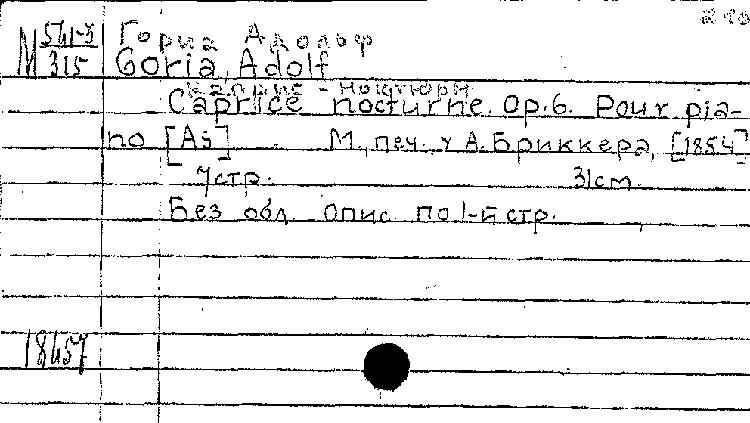 М 541-3
315
Гориа Адольф
Goria, Adolf
Каприс - Ноктюрн
Caprice nocturne. Op. 6. Pour pia-
no [As] М., печ. у А. Бриккера, [1854]
7 стр. 31 см.
Без обл. Опис. по 1-й стр.
18457